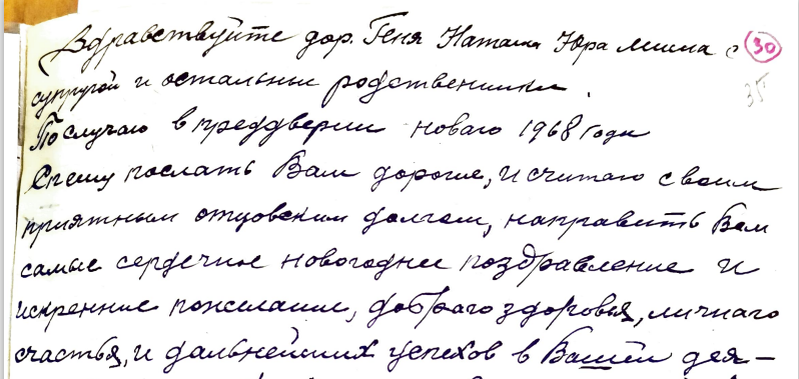 Здравствуйте дор. Геня Наташа Юра Миша с 30
супругой и остальные родственники.
35
По случаю в преддверии новаго 1968 года
Спешу послать Вам дорогие, и считаю своим
приятным отцовским долгом, направить Вам
самые сердечные новогоднее поздравление и
искренние пожелание, добраго здоровья, личнаго
счастья, и дальнейших успехов в Вашей дея-